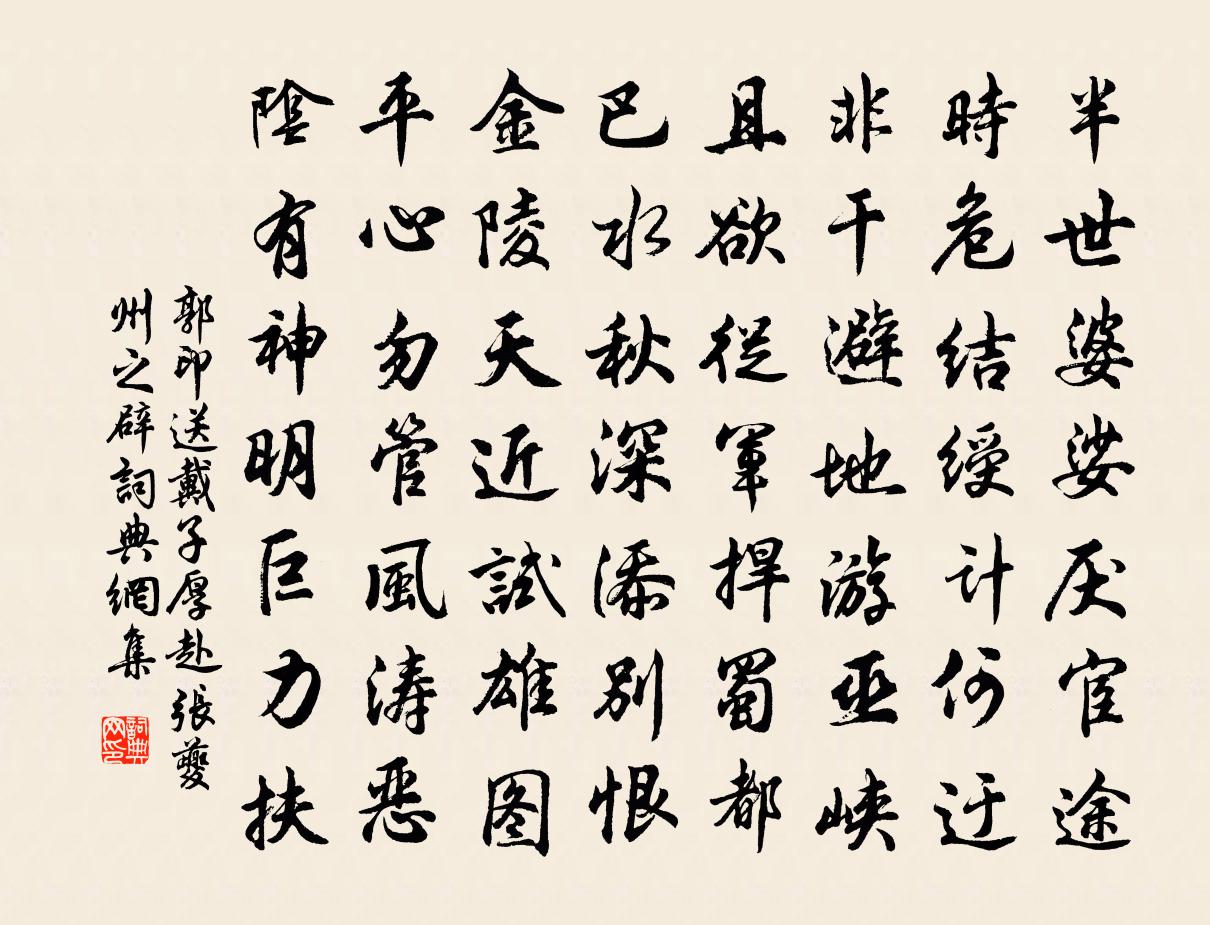 半世婆娑厌宦途
時危結綬计何迂
非干避地游巫峡
且欲從軍捍蜀都
巴水秋深添别恨
金陵天近試雄图
平心勿管風涛恶
陰有神明巨力扶
郭印送戴子厚赴張夔
州之辟詞典網集
詞典网印